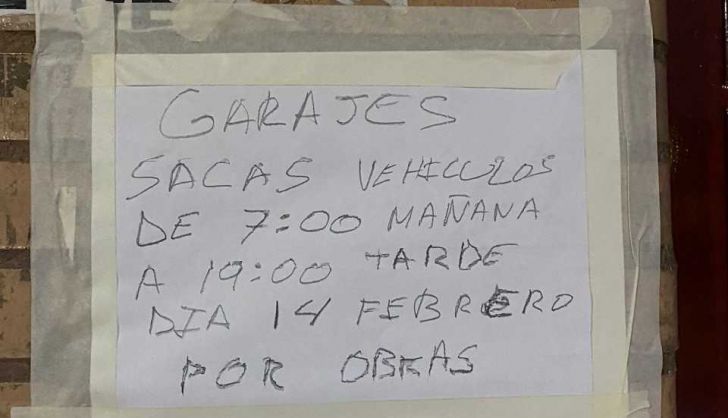 GARAJES
SACAS VEHICULOS
DE 7:00 MAÑANA
A 19:00 TARDE
DIA 14 FEBRERO
POR OBRAS